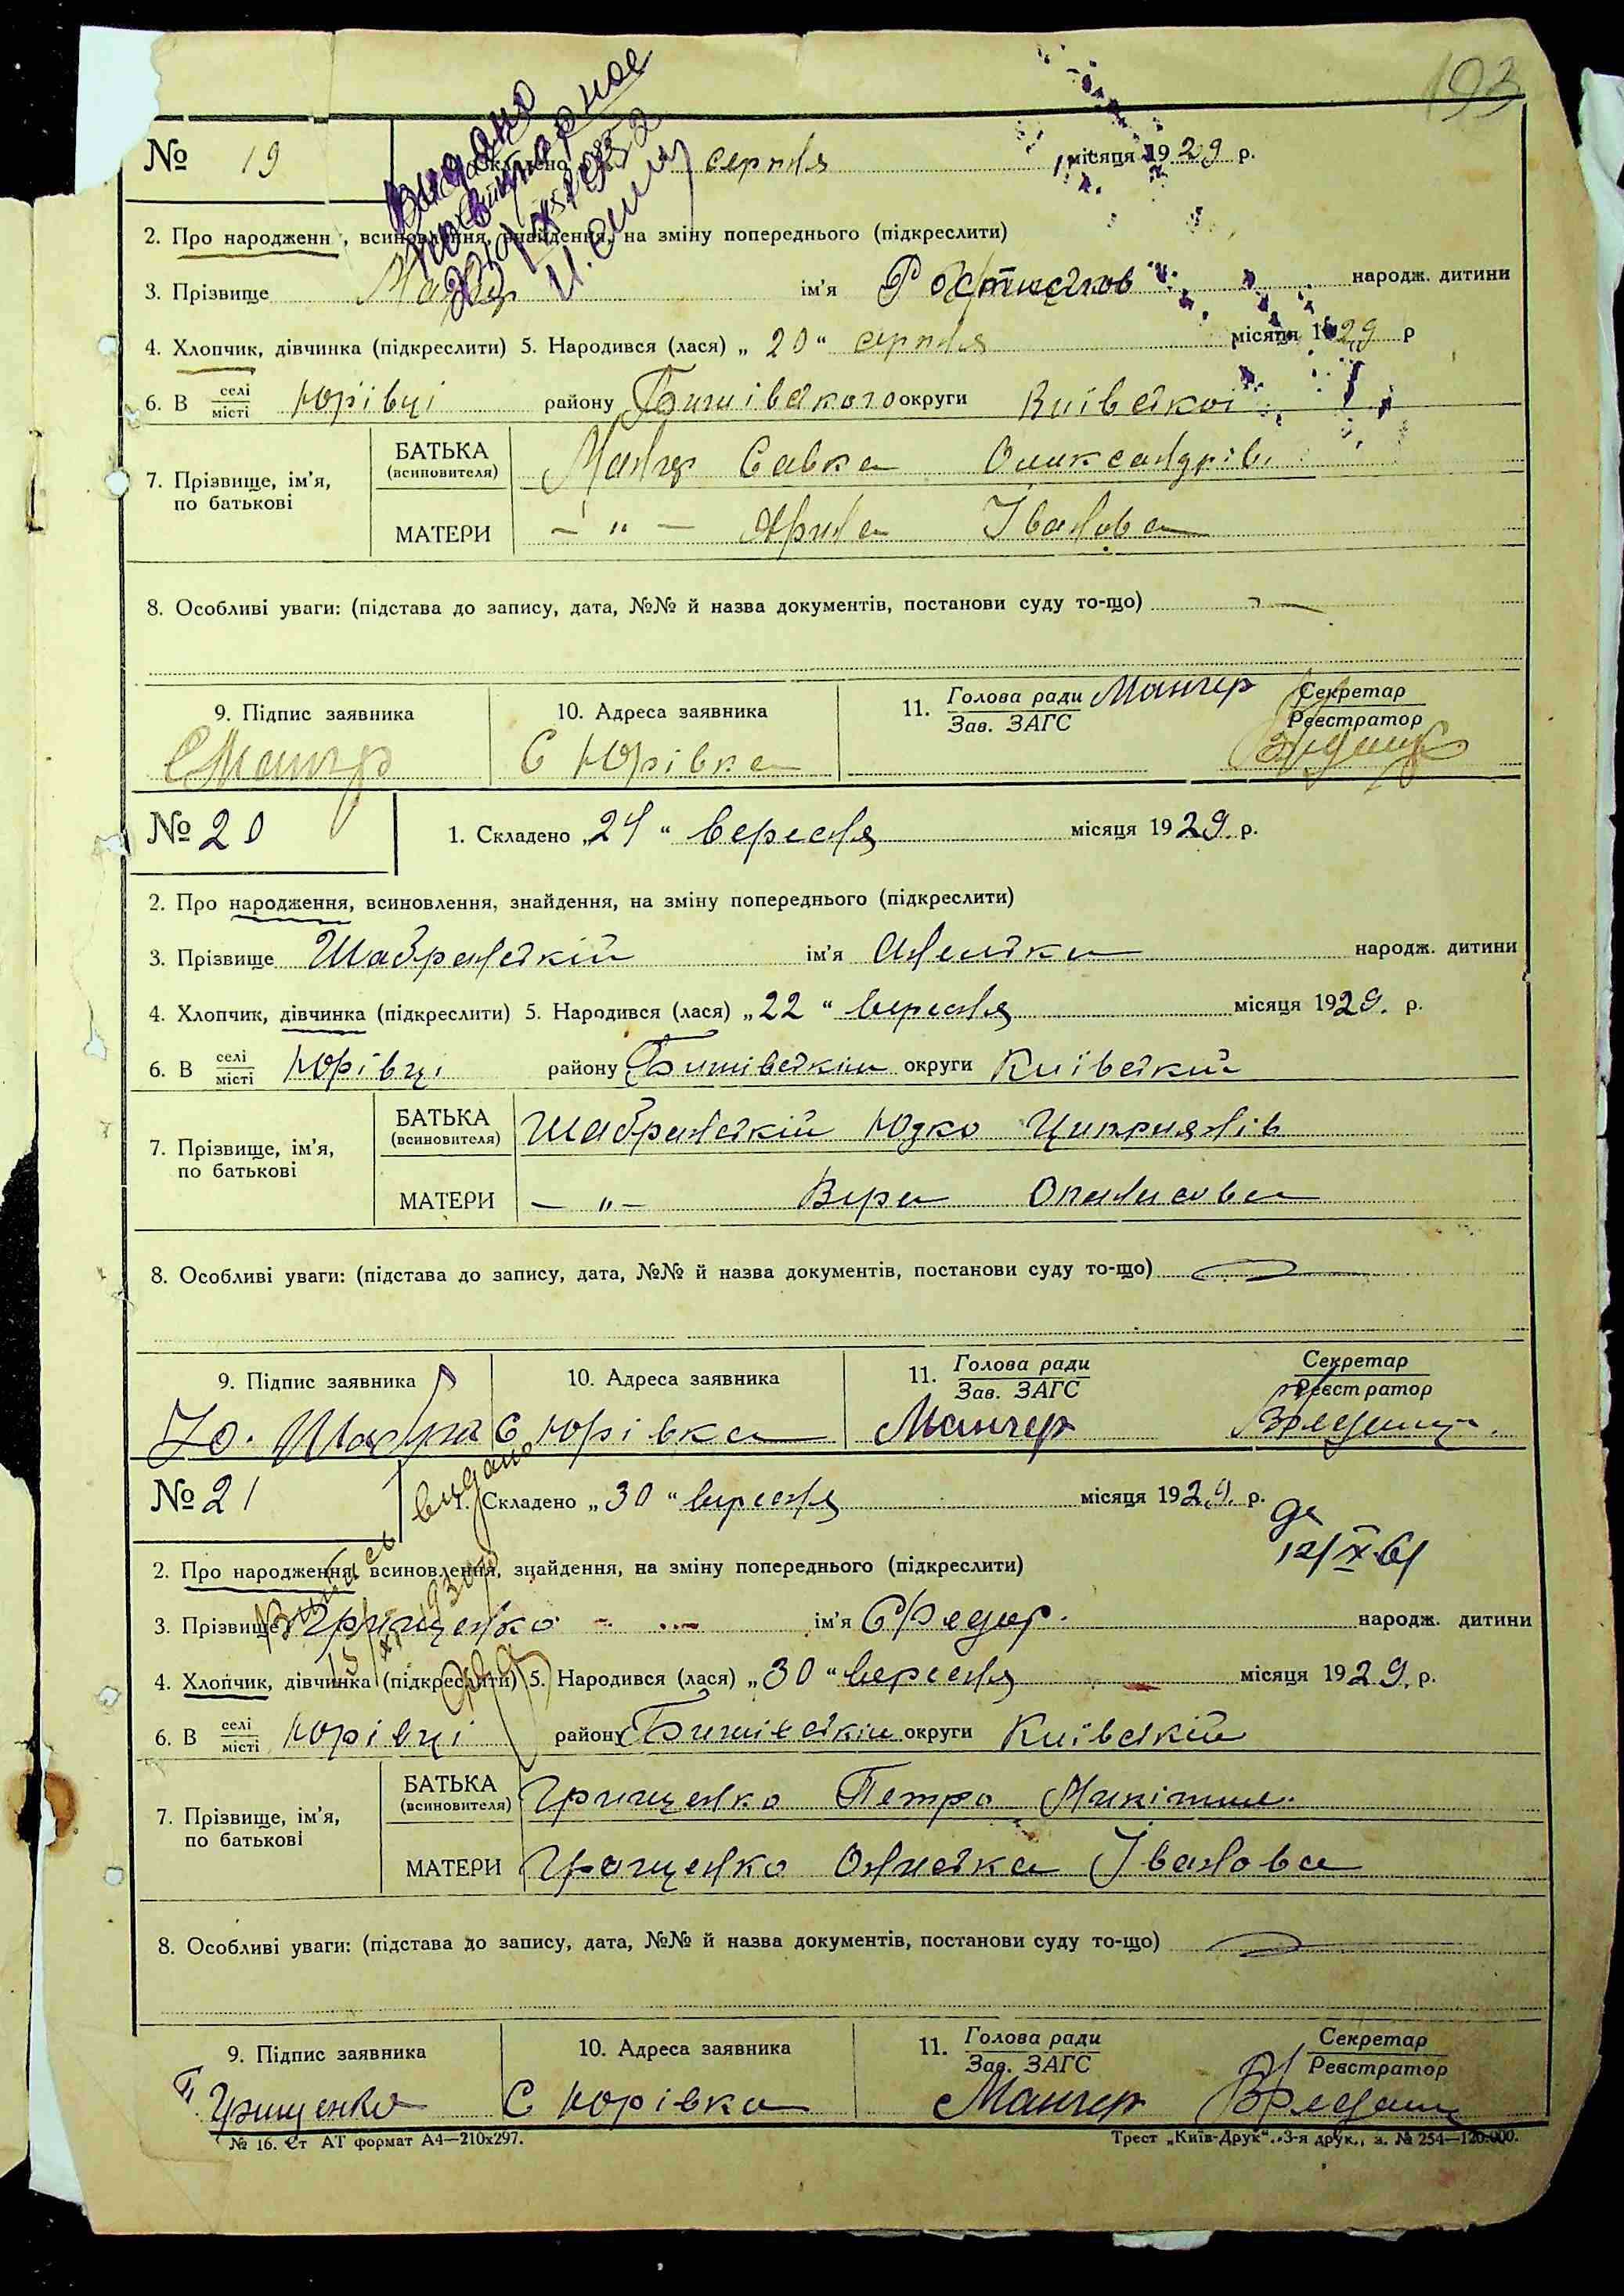 193
№ 19 серпня місяця 1929 р.
Видано
повторное
2. Про народженн , всиновлення, знайдення, на зміну попереднього (підкреслити)
3. Прізвище ім'я Ростислав народж. дитини
4. Хлопчик, дівчинка (підкреслити) 5. Народився (лася) „ 20 “ серпня місяця 1929 р
6. В селі/місті Юрівці району Бишівського округи Київскої
7. Прізвище, ім'я, по батькові
БАТЬКА (всиновителя) Манчер Савка Олександрів.
МАТЕРИ – „ – Ярина Іванова
8. Особливі уваги: (підстава до запису, дата, №№ й назва документів, постанови суду то-що)
9. Підпис заявника 10. Адреса заявника 11. Голова ради/Зав. ЗАГС Манчер Секретар/Реєстратор
С Юрівка
№ 20 1. Складено „ 24 “ вересня місяця 1929. р.
2. Про народження, всиновлення, знайдення, на зміну попереднього (підкреслити)
3. Прізвище Шабранскій ім'я народж. дитини
4. Хлопчик, дівчинка (підкреслити) 5. Народився (лася) „ 22 “ вересня місяця 1929. р.
6. В селі/місті Юрівці району Бишівскім округи Київскій
7. Прізвище, ім'я, по батькові
БАТЬКА (всиновителя) Шабранскій Юзко Ципріянів
МАТЕРИ – „ – Вера Опанасова
8. Особливі уваги: (підстава до запису, дата, №№ й назва документів, постанови суду то-що)
9. Підпис заявника 10. Адреса заявника 11. Голова ради/Зав. ЗАГС Секретар/Реєстратор
Ю. Шабра С Юрівка Манчер
№ 21 1. Складено „ 30 “ вересня місяця 1929. р.
Випись видано
12/X-61
2. Про народження, всиновлення, знайдення, на зміну попереднього (підкреслити)
3. Прізвище Грищенко ім'я Федор. народж. дитини
4. Хлопчик, дівчинка (підкреслити) 5. Народився (лася) „ 30 “ вересня місяця 1929. р.
6. В селі/місті Юрівці району Бишівскім округи Київскій
7. Прізвище, ім'я, по батькові
БАТЬКА (всиновителя) Грищенко Петро
МАТЕРИ ГрищенкоОниска Іванова
8. Особливі уваги: (підстава до запису, дата, №№ й назва документів, постанови суду то-що)
9. Підпис заявника 10. Адреса заявника 11. Голова ради/Зав. ЗАГС Секретар/Реєстратор
П. Грищенко С Юрівка Манчер
№ 16. Ст АТ формат А4—210x297. Трест „Київ-Друк“. 3-я друк., з. № 254—120.000.